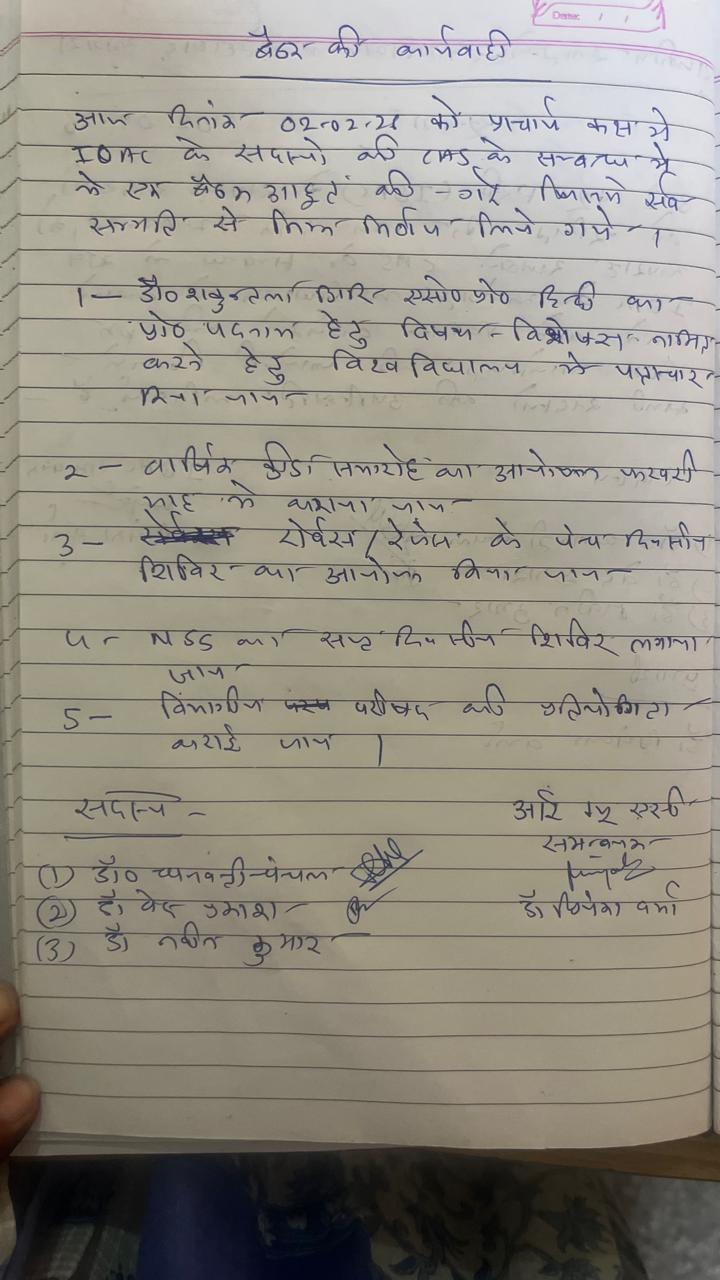 Date: / /
बैठक की कार्यवाही
आज दिनांक 02-02-26 को प्राचार्य कक्ष मे
IQAC के सदस्यो की CAS के सम्बन्ध मे
मे एक बैठक आहूत की गई जिसमे सर्व
सम्मति से निम्न निर्णय लिये गये ।
1- डॉ० शकुन्तला गिरि एसो० प्रो० हिन्दी का
प्रो० पदनाम हेतु विषय-विशेषज्ञ नामित
करने हेतु विश्वविद्यालय से पत्राचार
किया जाय
2- वार्षिक क्रीडा समारोह का आयोजन फरवरी
माह मे कराया जाय
3- रोवर्स / रेंजर्स के पंच दिवसीय
शिविर का आयोजन किया जाय
4- NSS का सप्त दिवसीय शिविर लगाया
जाय
5- विभागीय परीषद की प्रतियोगिता
कराई जाय ।
सदस्य - आई क्यू एसी
समन्वयक
(1) डॉ०
(2) डॉ वेद प्रकाश डॉ प्रियंका वर्मा
(3) डॉ नवीन कुमार